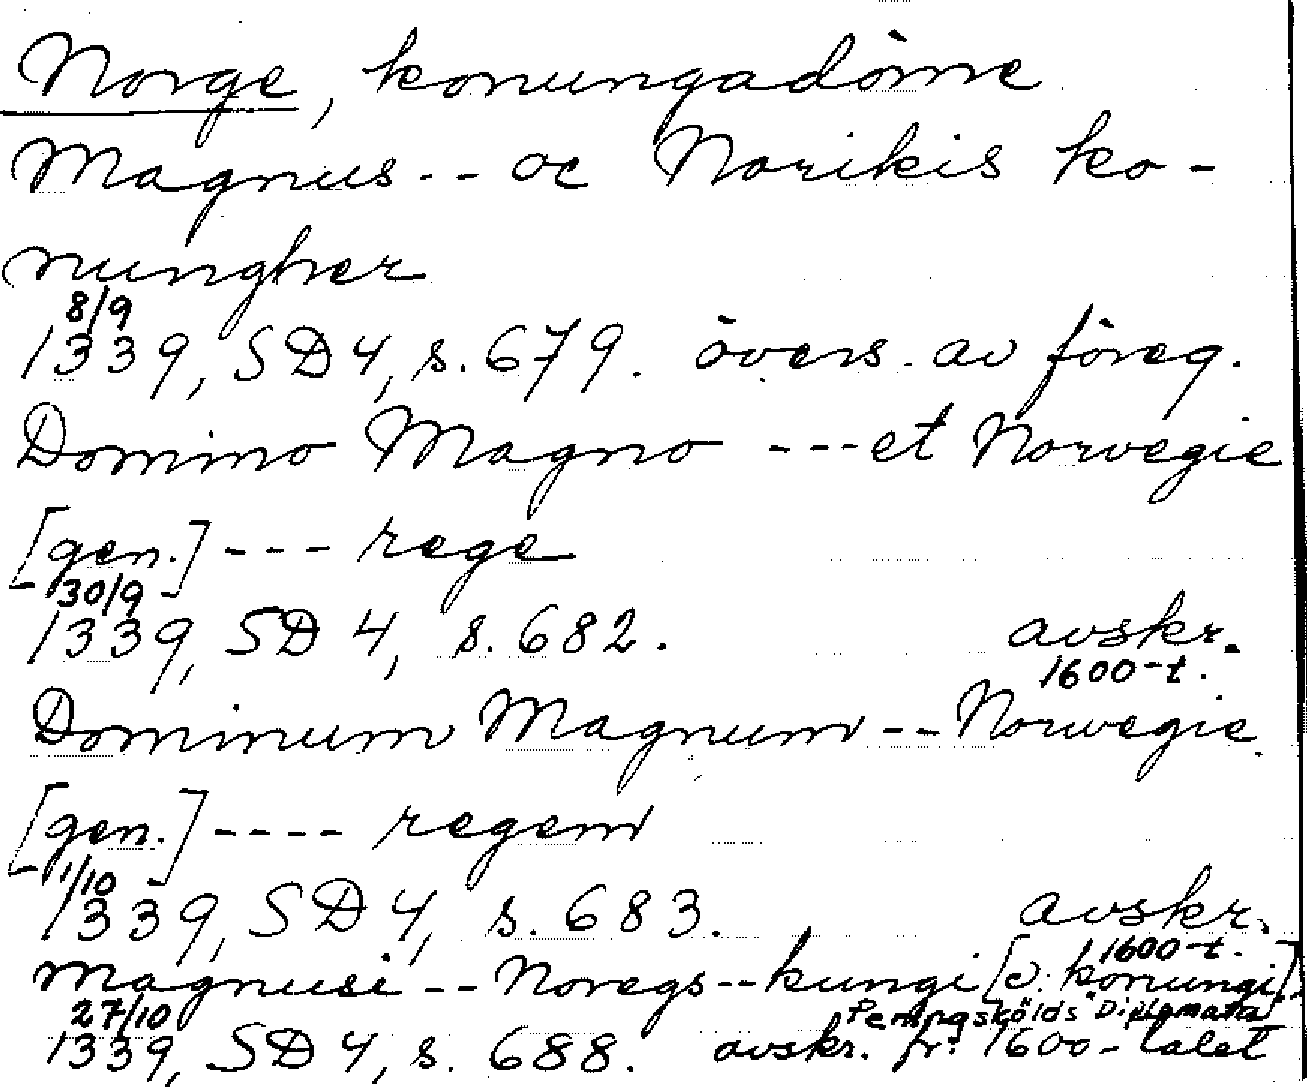 Norge, konungadöme
Magnus -- oc Norikis ko-
nungher
8/9
1339, SD 4, s. 679. övers. av föreg.
Domino Magno --- et Norwegie
[gen.] --- rege
30/9
1339, SD 4, s. 682. avskr.
1600-t.
Dominum Magnum -- Norwegie
[gen.] ---- regem
1/10
1339, SD 4, s. 683. avskr.
1600-t.
Magnusi -- Noregs -- kungi [o: konungi]
27/10 Peringskölds "Diplomata"
1339, SD 4, s. 688. avskr. fr. 1600-talet